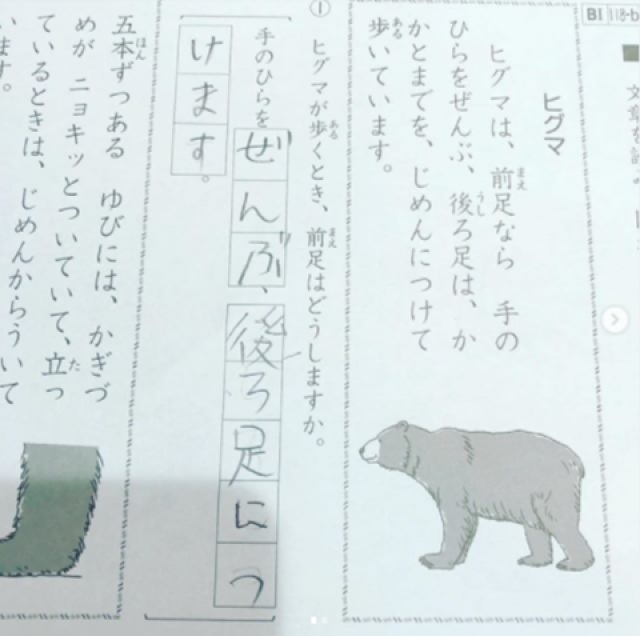 BI 118-b
ヒグマ
ヒグマは、前足なら 手の
ひらをぜんぶ、後ろ足は、か
かとまでを、じめんにつけて
歩いています。
① ヒグマが歩くとき、前足はどうしますか。
手のひらをぜんぶ、後ろ足につ
けます。
五本ずつある ゆびには、かぎづ
めが ニョキッとついていて、立っ
ているときは、じめんからういて
います。